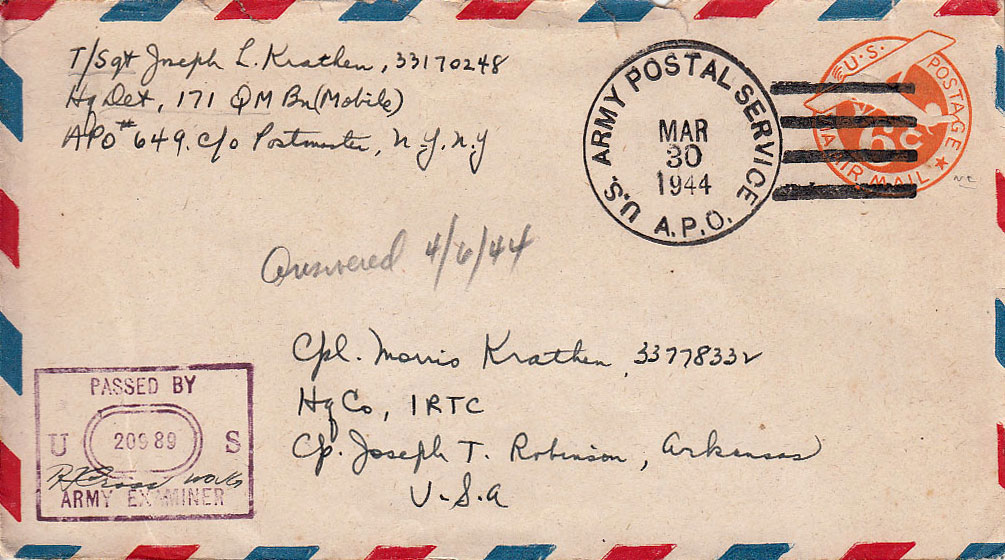 T/Sgt Joseph L. Krathen, 33170248
Hq Det, 171 QM Bn (Mobile)
APO # 649. c/o Postmaster, N.Y, N.Y
U.S. ARMY POSTAL SERVICE
MAR
30
1944
A.P.O.
U.S. POSTAGE
6c
VIA AIR MAIL
Answered 4/6/44
Cpl. Morris Krathen, 33778332
Hq Co, IRTC
Cp. Joseph T. Robinson, Arkansas
U.S.A
PASSED BY
U 20989 S
ARMY EXAMINER